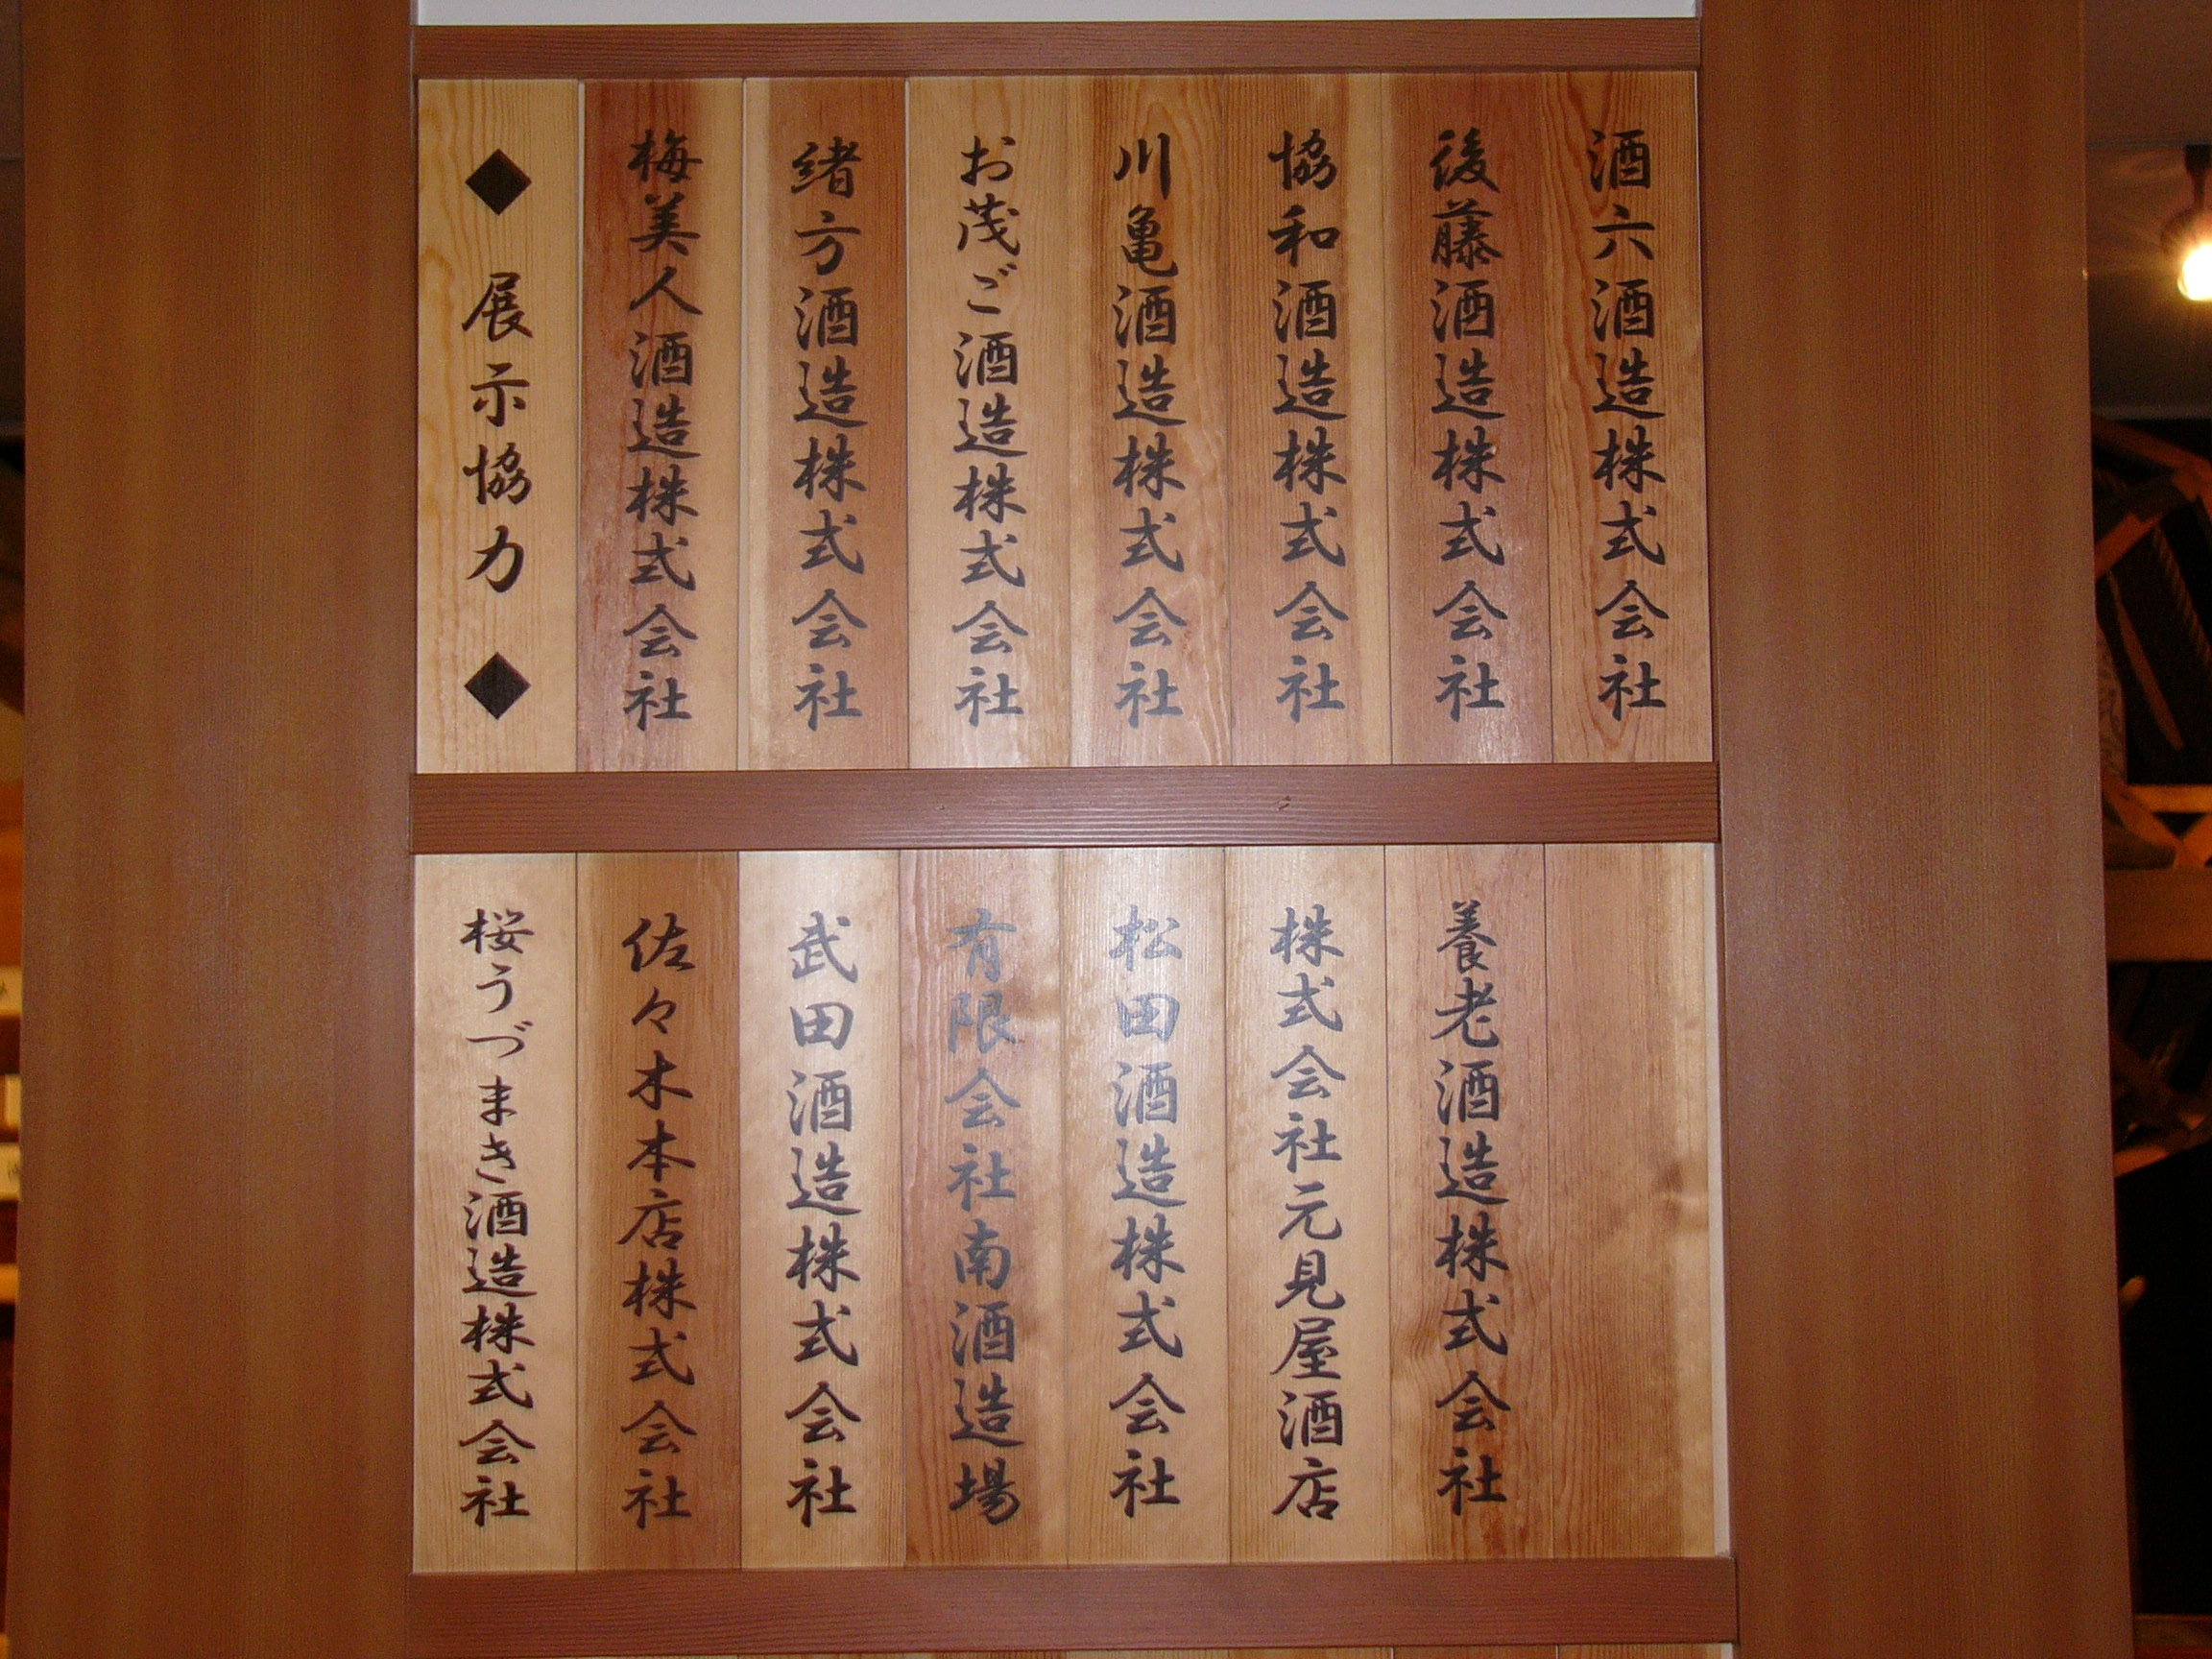 ◆ 展示協力 ◆
梅美人酒造株式会社
緒方酒造株式会社
お茂ご酒造株式会社
川亀酒造株式会社
協和酒造株式会社
後藤酒造株式会社
酒六酒造株式会社
桜うづまき酒造株式会社
佐々木本店株式会社
武田酒造株式会社
有限会社南酒造場
松田酒造株式会社
株式会社元見屋酒店
養老酒造株式会社